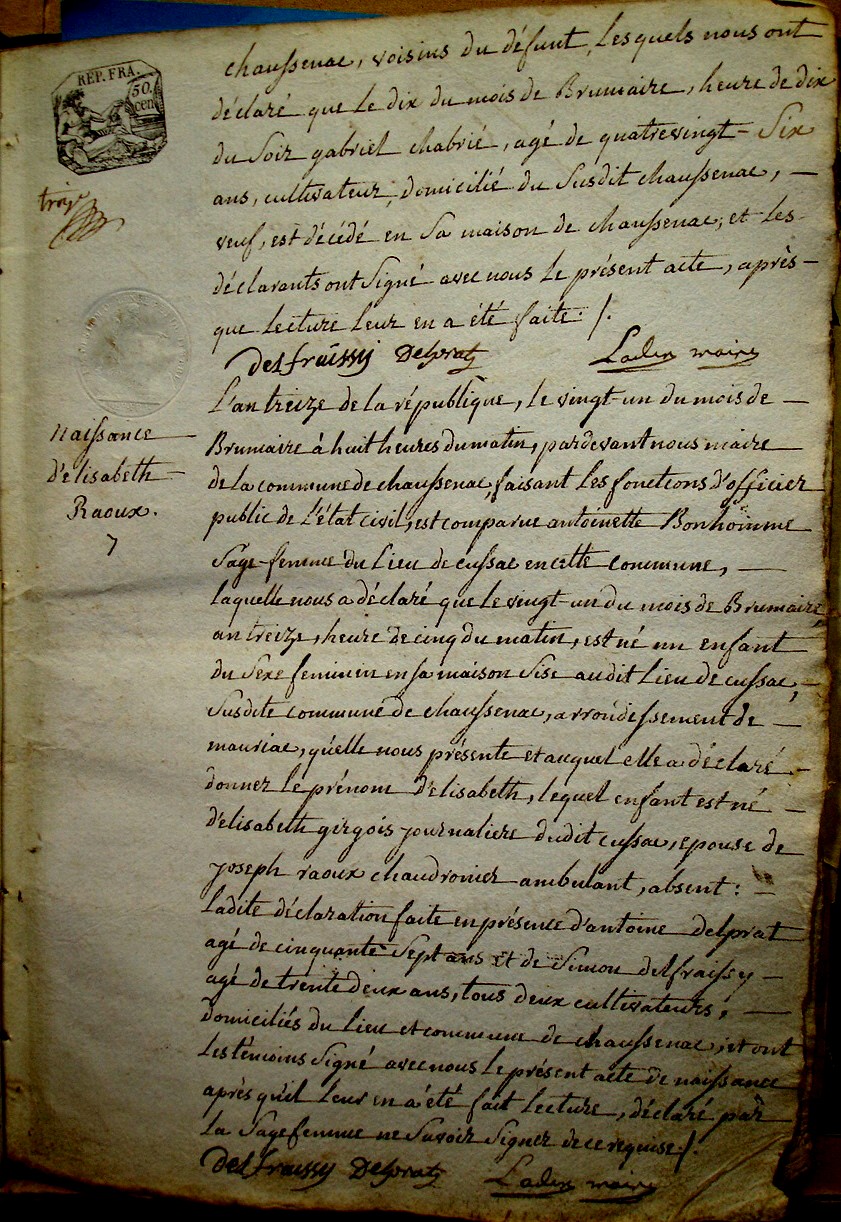 REP. FRA.
50.
cen
treize
chaussenac, voisins du défunt, lesquels nous ont
déclaré que le dix du mois de Brumaire, heure de dix
du soir gabriel chabrié, agé de quatrevingt - six
ans, cultivateur, domicilié du susdit chaussenac, —
veuf, est décédé en sa maison de chaussenac, et les
déclarants ont signé avec nous le présent acte, après —
que lecture leur en a été faite. /.
delfraissy Delprat Laden maire
naissance
d'elisabeth
Raoux.
7
L'an treize de la république, le vingt-un du mois de —
Brumaire à huit heures du matin, pardevant nous maire
de la commune de chaussenac, faisant les fonctions d'officier
public de l'état civil, est comparue antoinette Bonhomme
sage-femme du lieu de cussac en cette commune, —
laquelle nous a déclaré que le vingt-un du mois de Brumaire,
an treize, heure de cinq du matin, est né un enfant
du sexe feminin en sa maison sise audit lieu de cussac, —
susdite commune de chaussenac, arrondissement de —
mauriac, qu'elle nous présente et auquel elle a déclaré —
donner le prénom d'elisabeth, lequel enfant est né —
d'elisabeth girgois journaliere dudit cussac, epouse de
joseph raoux chaudronier ambulant, absent: —
Ladite déclaration faite en présence d'antoine delprat
agé de cinquante sept ans et de Simon delfraissy —
agé de trente deux ans, tous deux cultivateurs, —
domiciliés du lieu et commune de chaussenac, et ont
les témoins signé avec nous le présent acte de naissance
après qu'il leur en a été fait lecture, déclaré par
la sagefemme ne savoir signer de ce requise /.
delfraissy Delprat Laden maire